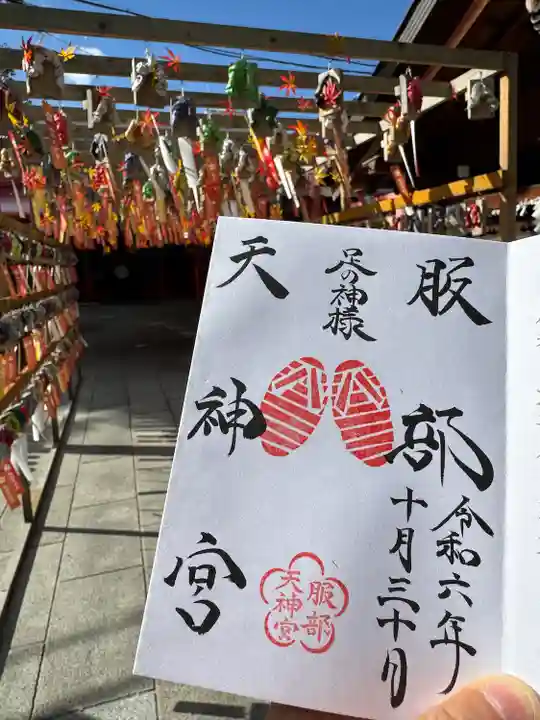 服部
天神宮
足の神様
令和六年
十月三十日
服部
天神宮